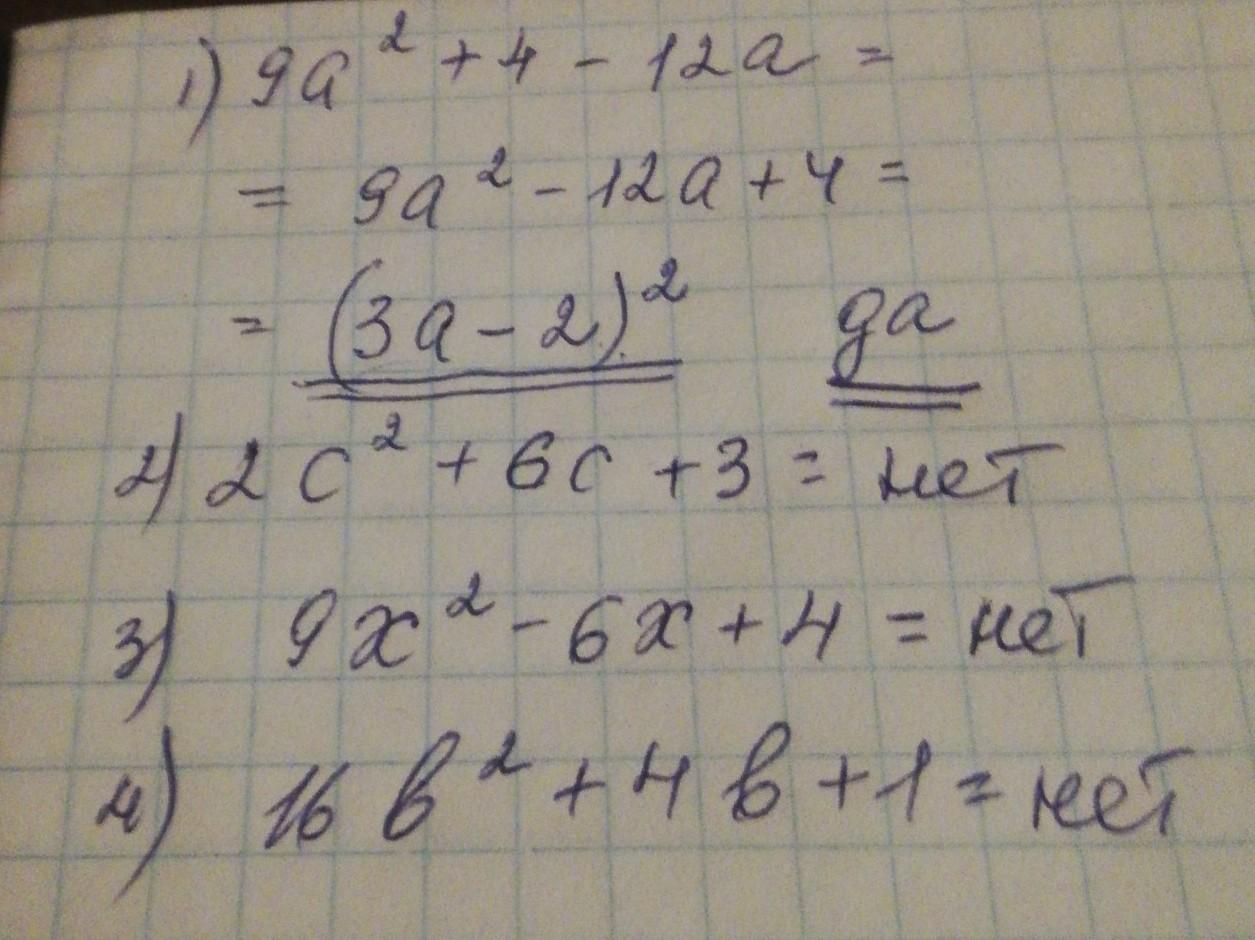 1) 9a² + 4 - 12a =
= 9a² - 12a + 4 =
= (3a - 2)² да
2) 2c² + 6c + 3 = нет
3) 9x² - 6x + 4 = нет
4) 16b² + 4b + 1 = нет